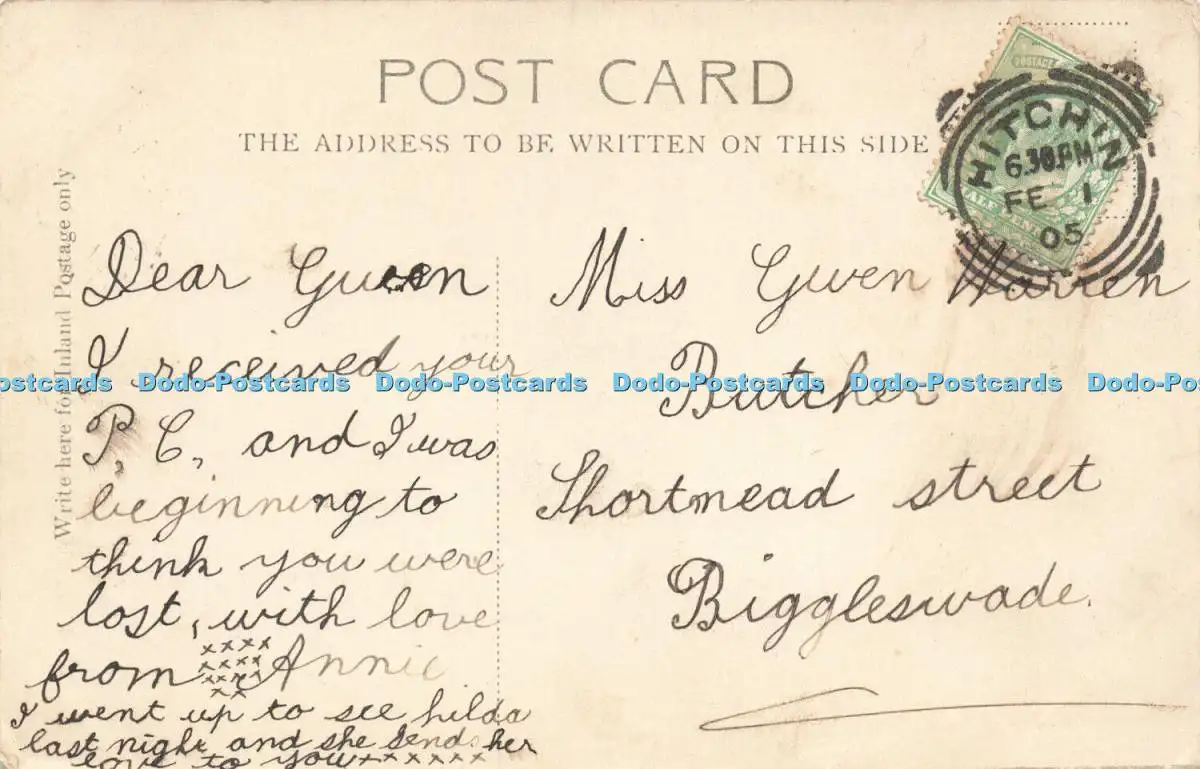 POST CARD
THE ADDRESS TO BE WRITTEN ON THIS SIDE
Write here for Inland Postage only
POSTAGE
HITCHIN
6.30PM
FE 1
05
Dear Gwen
I received your
P. C, and I was
beginning to
think you were
lost, with love
from xxxx Annie
xxxx
xxxx
xx
I went up to see hilda
last night and she sends her
love to you xxxxxx
Miss Gwen Warren
Butcher
Shortmead street
Biggleswade.
Dodo-Postcards Dodo-Postcards Dodo-Postcards Dodo-Postcards